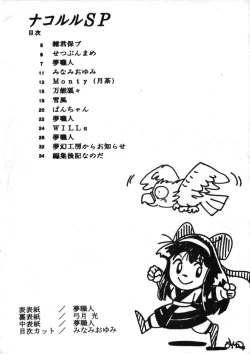 ナコルルSP
目次
5 雑君保プ
6 せつぶんまめ
7 夢職人
11 みなみおゆみ
12 Monty（月茶）
15 万能狐々
19 雪風
20 ばんちゃん
22 夢職人
24 WILLs
26 夢職人
32 夢幻工房からお知らせ
34 編集後記なのだ
表表紙 / 夢職人
裏表紙 / 弓月 光
中表紙 / 夢職人
目次カット / みなみおゆみ